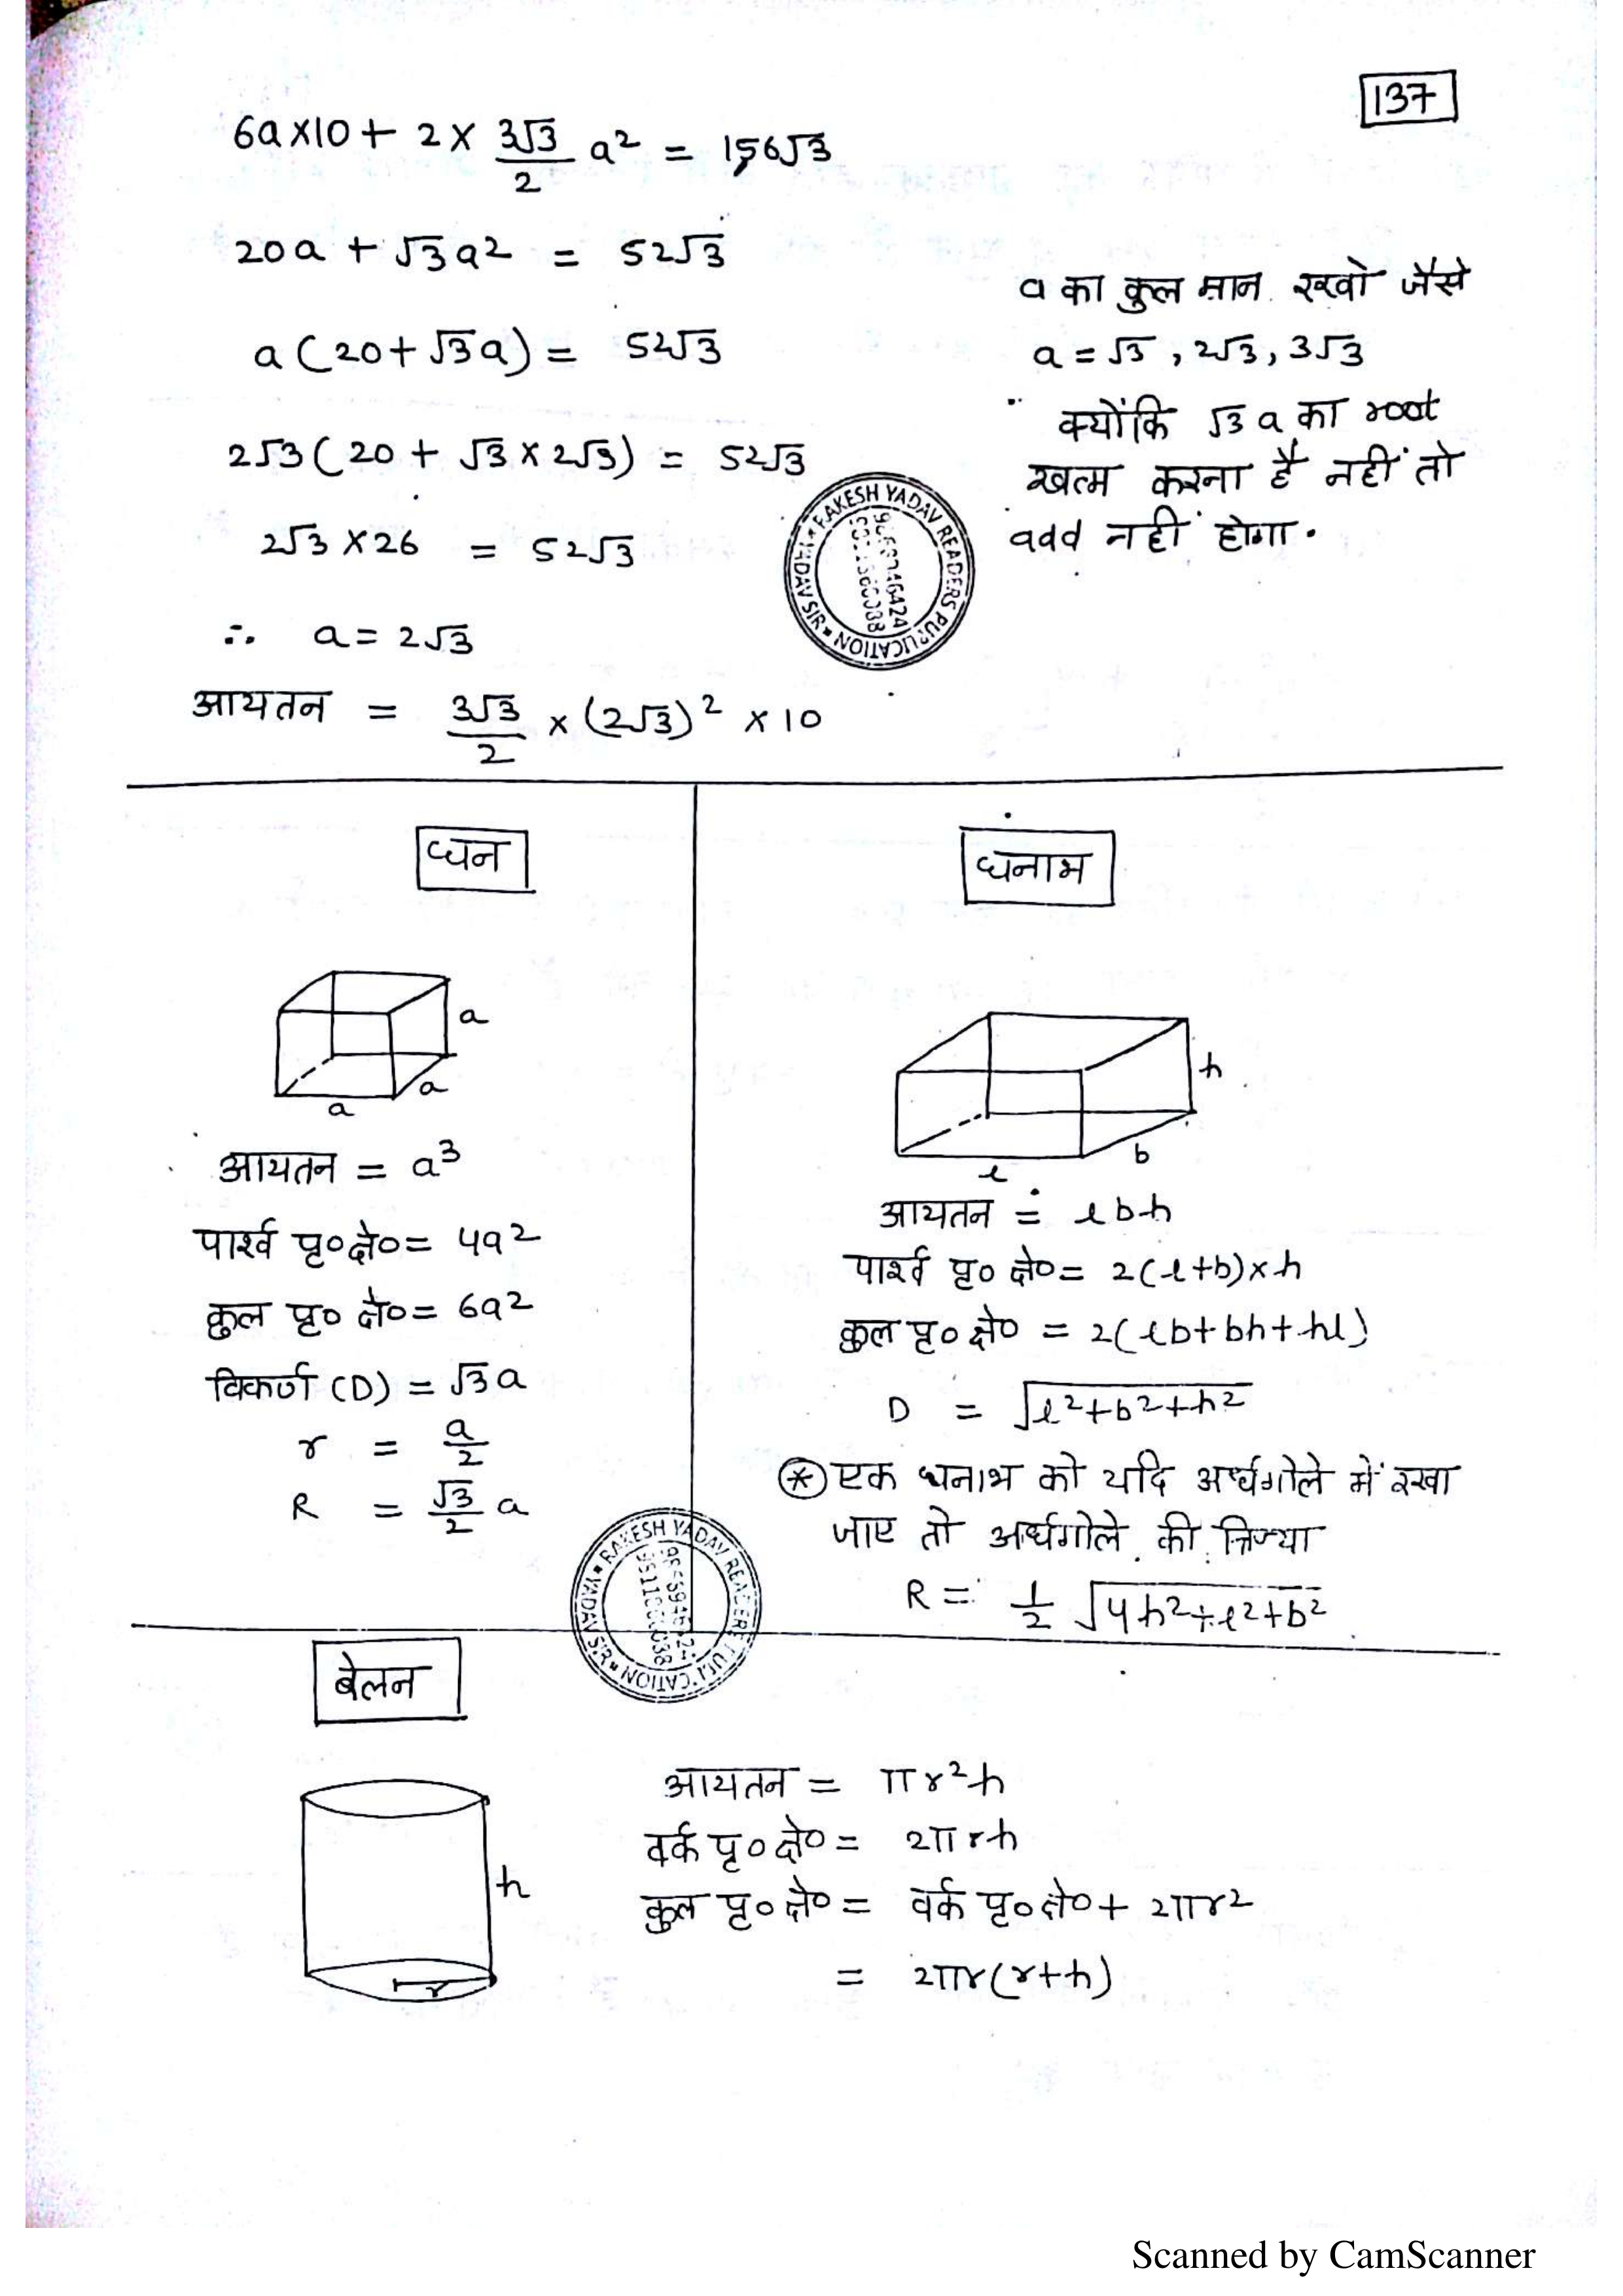 137
6a×10 + 2 × 3√3/2 a² = 156√3
20a + √3a² = 52√3
a(20+√3a) = 52√3
2√3(20 + √3×2√3) = 52√3
2√3×26 = 52√3
∴ a = 2√3
a का कुल मान रखो जैसे
a = √3, 2√3, 3√3
क्योंकि √3 a का root
खत्म करना है नहीं तो
add नहीं होगा.
आयतन = 3√3/2 × (2√3)² × 10
RAKESH YADAV READERS PUBLICATION YADAV SIR
घन
a
a
a
आयतन = a³
पार्श्व पृ० क्षे० = 4a²
कुल पृ० क्षे० = 6a²
विकर्ण (D) = √3a
r = a/2
R = √3/2 a
घनाभ
h
b
l
आयतन = lbh
पार्श्व पृ० क्षे० = 2(l+b)×h
कुल पृ० क्षे० = 2(lb+bh+hl)
D = √l²+b²+h²
* एक घनाभ को यदि अर्धगोले में रखा
जाए तो अर्धगोले की त्रिज्या
R = 1/2 √4h²+l²+b²
RAKESH YADAV READERS PUBLICATION YADAV SIR
बेलन
h
r
आयतन = πr²h
वर्क पृ० क्षे० = 2πrh
कुल पृ० क्षे० = वर्क पृ० क्षे० + 2πr²
= 2πr(r+h)
Scanned by CamScanner